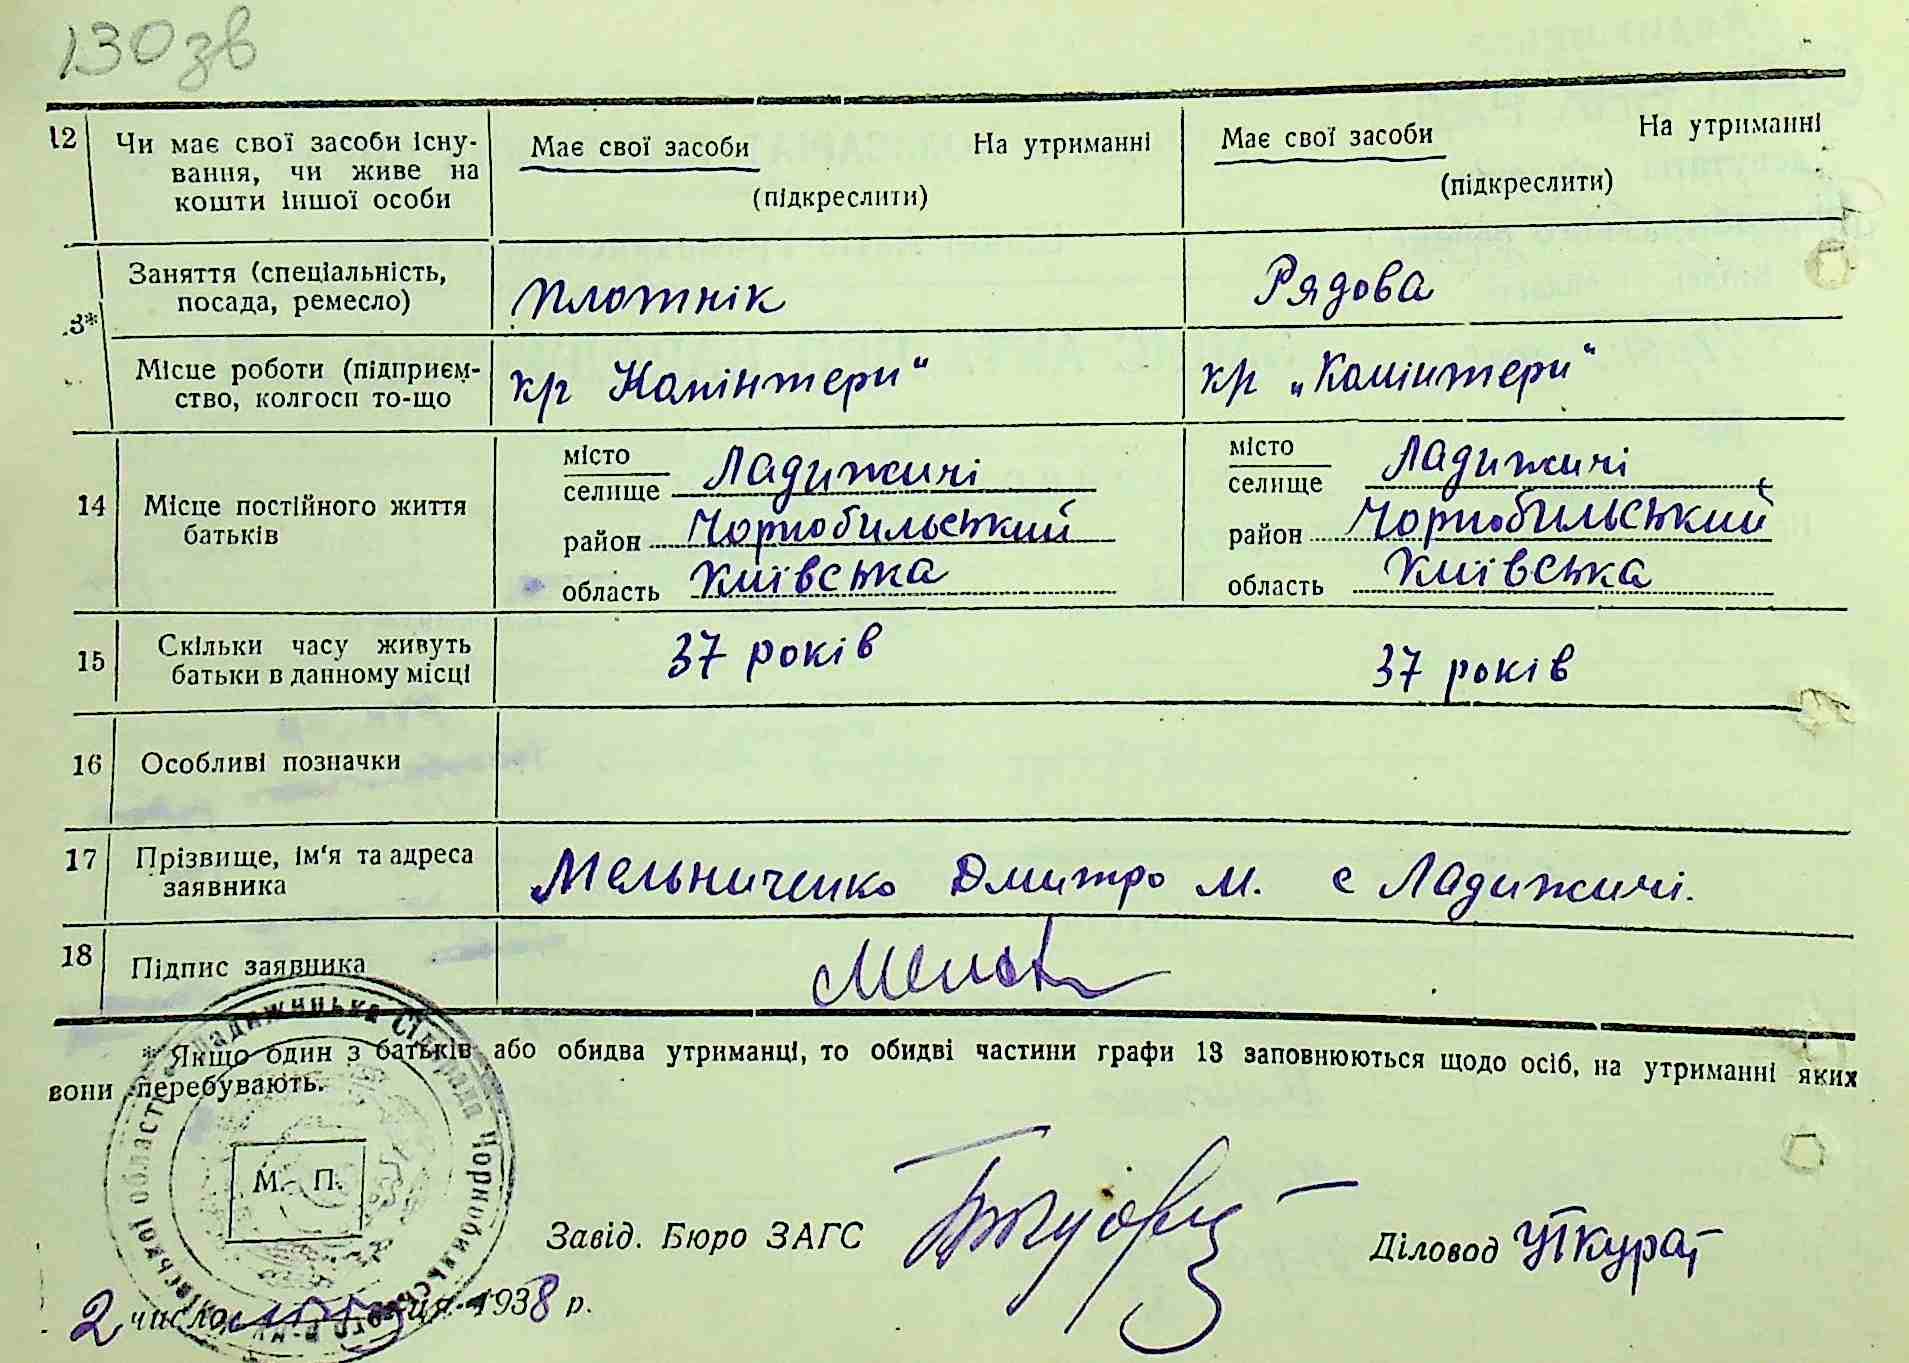 130 зв
12 Чи має свої засоби існу-
вання, чи живе на
кошти іншої особи
Має свої засоби На утриманні
(підкреслити)
Має свої засоби На утриманні
(підкреслити)
.3*
Заняття (спеціальність,
посада, ремесло)
плотнік
Рядова
Місце роботи (підприєм-
ство, колгосп то-що
к/г Комінтерн"
к/г „Комінтерн"
14 Місце постійного життя
батьків
місто
селище Ладижичі
район Чорнобильський
область Київська
місто
селище Ладижичі
район Чорнобильський
область Київська
15 Скільки часу живуть
батьки в данному місці
37 років
37 років
16 Особливі позначки
17 Прізвище, ім'я та адреса
заявника
Мельниченко Дмитро М. с Ладижичі.
18 Підпис заявника
* Якщо один з батьків або обидва утриманці, то обидві частини графи 13 заповнюються щодо осіб, на утриманні яких
вони перебувають.
Ладижицька Сільрада Чорнобильського р-ну Київської області
М. П.
Завід. Бюро ЗАГС
Діловод
2 число 1938 р.